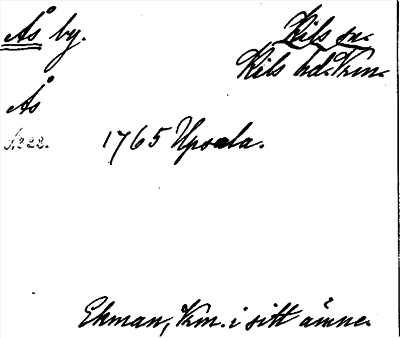 Ås by. Kils sn.
Kils hd. Vrm.
Ås
1765 Upsala.
Ekman, Vrm. i sitt ämne.